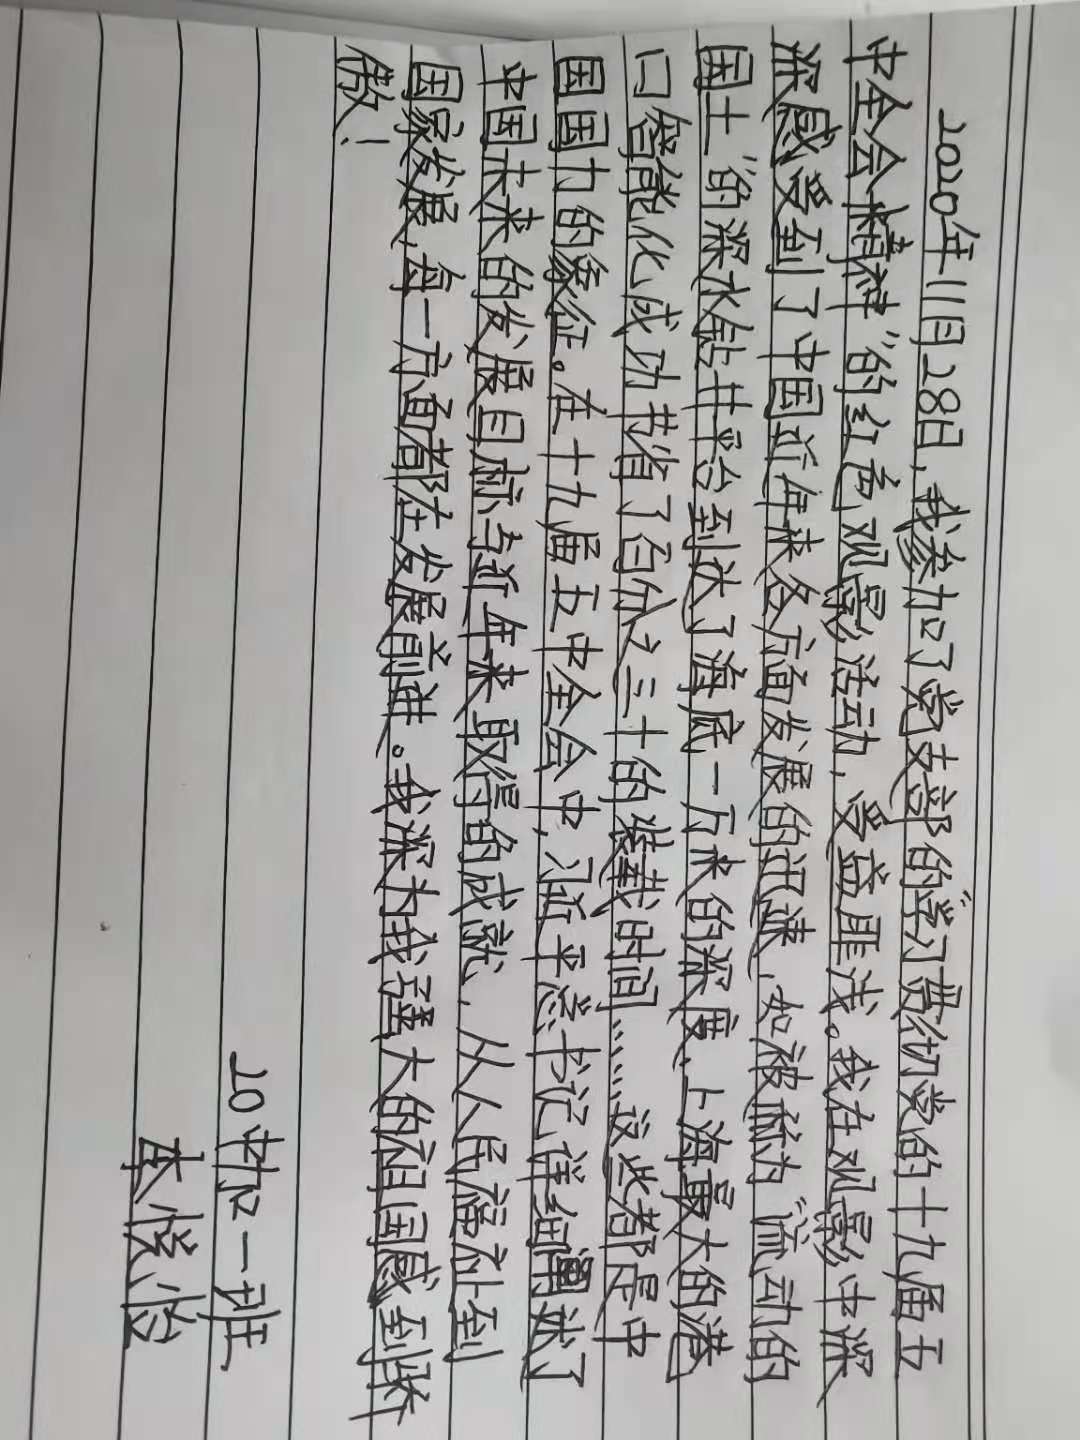 2020年11月28日,我参加了党支部的“学习贯彻党的十九届五
中全会精神”的红色观影活动,受益匪浅。我在观影中深
深感受到了中国近年来各方面发展的迅速,如被称为“流动的
国土”的深水钻井平台到达了海底一万米的深度,上海最大的港
口智能化成功节省了百分之三十的装载时间……这些都是中
国国力的象征。在十九届五中全会中,习近平总书记详细阐述了
中国未来的发展目标与近年来取得的成就,从人民福祉到
国家发展,每一方面都在发展前进。我深为我强大的祖国感到骄
傲!
20
一班